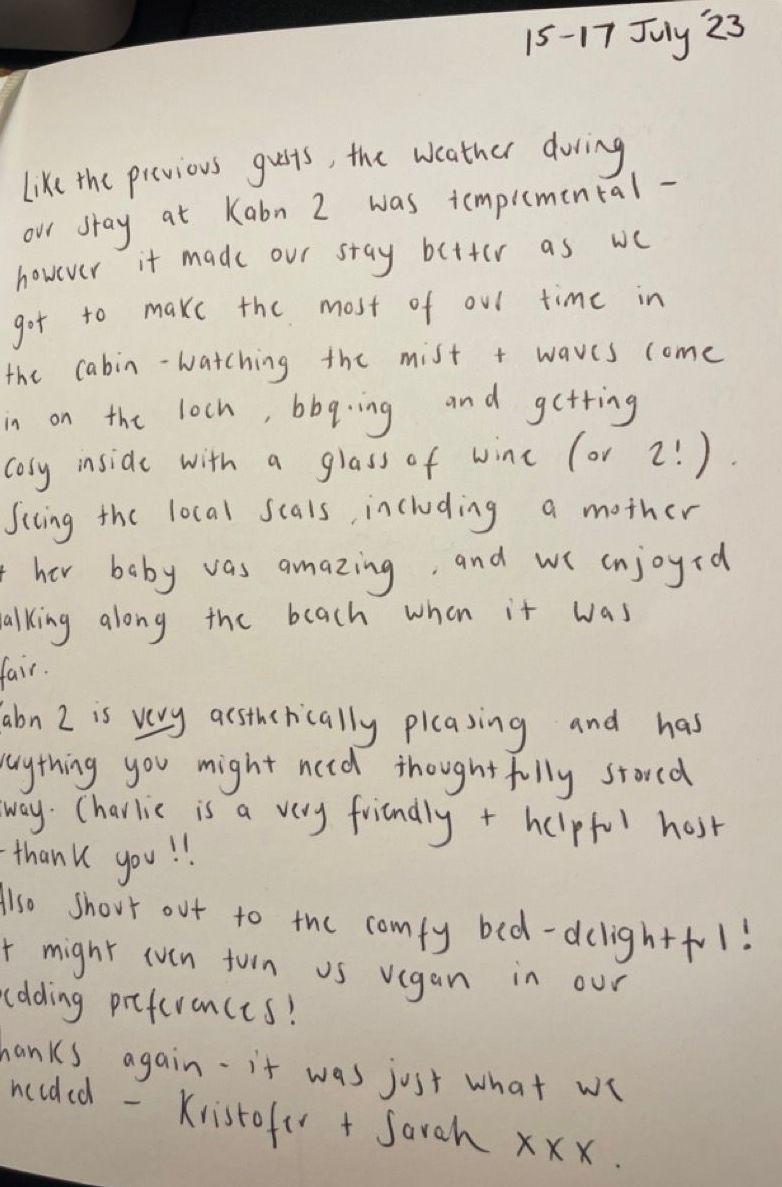 15-17 July '23
Like the previous guests, the weather during
our stay at Kabn 2 was tempremental -
however it made our stay better as we
got to make the most of our time in
the cabin - watching the mist + waves come
in on the loch, bbq-ing and getting
cosy inside with a glass of wine (or 2!).
Seeing the local seals, including a mother
+ her baby was amazing, and we enjoyed
alking along the beach when it was
fair.
abn 2 is very aesthetically pleasing and has
erything you might need thoughtfully stored
way. Charlie is a very friendly + helpful host
- thank you!!
Also shout out to the comfy bed - delightful!
t might even turn us vegan in our
edding preferences!
hanks again - it was just what we
needed - Kristofer + Sarah xxx.